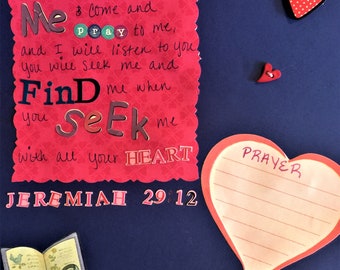 Me & Come and
pray to me,
and I will listen to you
you will seek me and
FinD me when
you SeEK me
with all your HEART
JEREMIAH 29 12
PRAYER